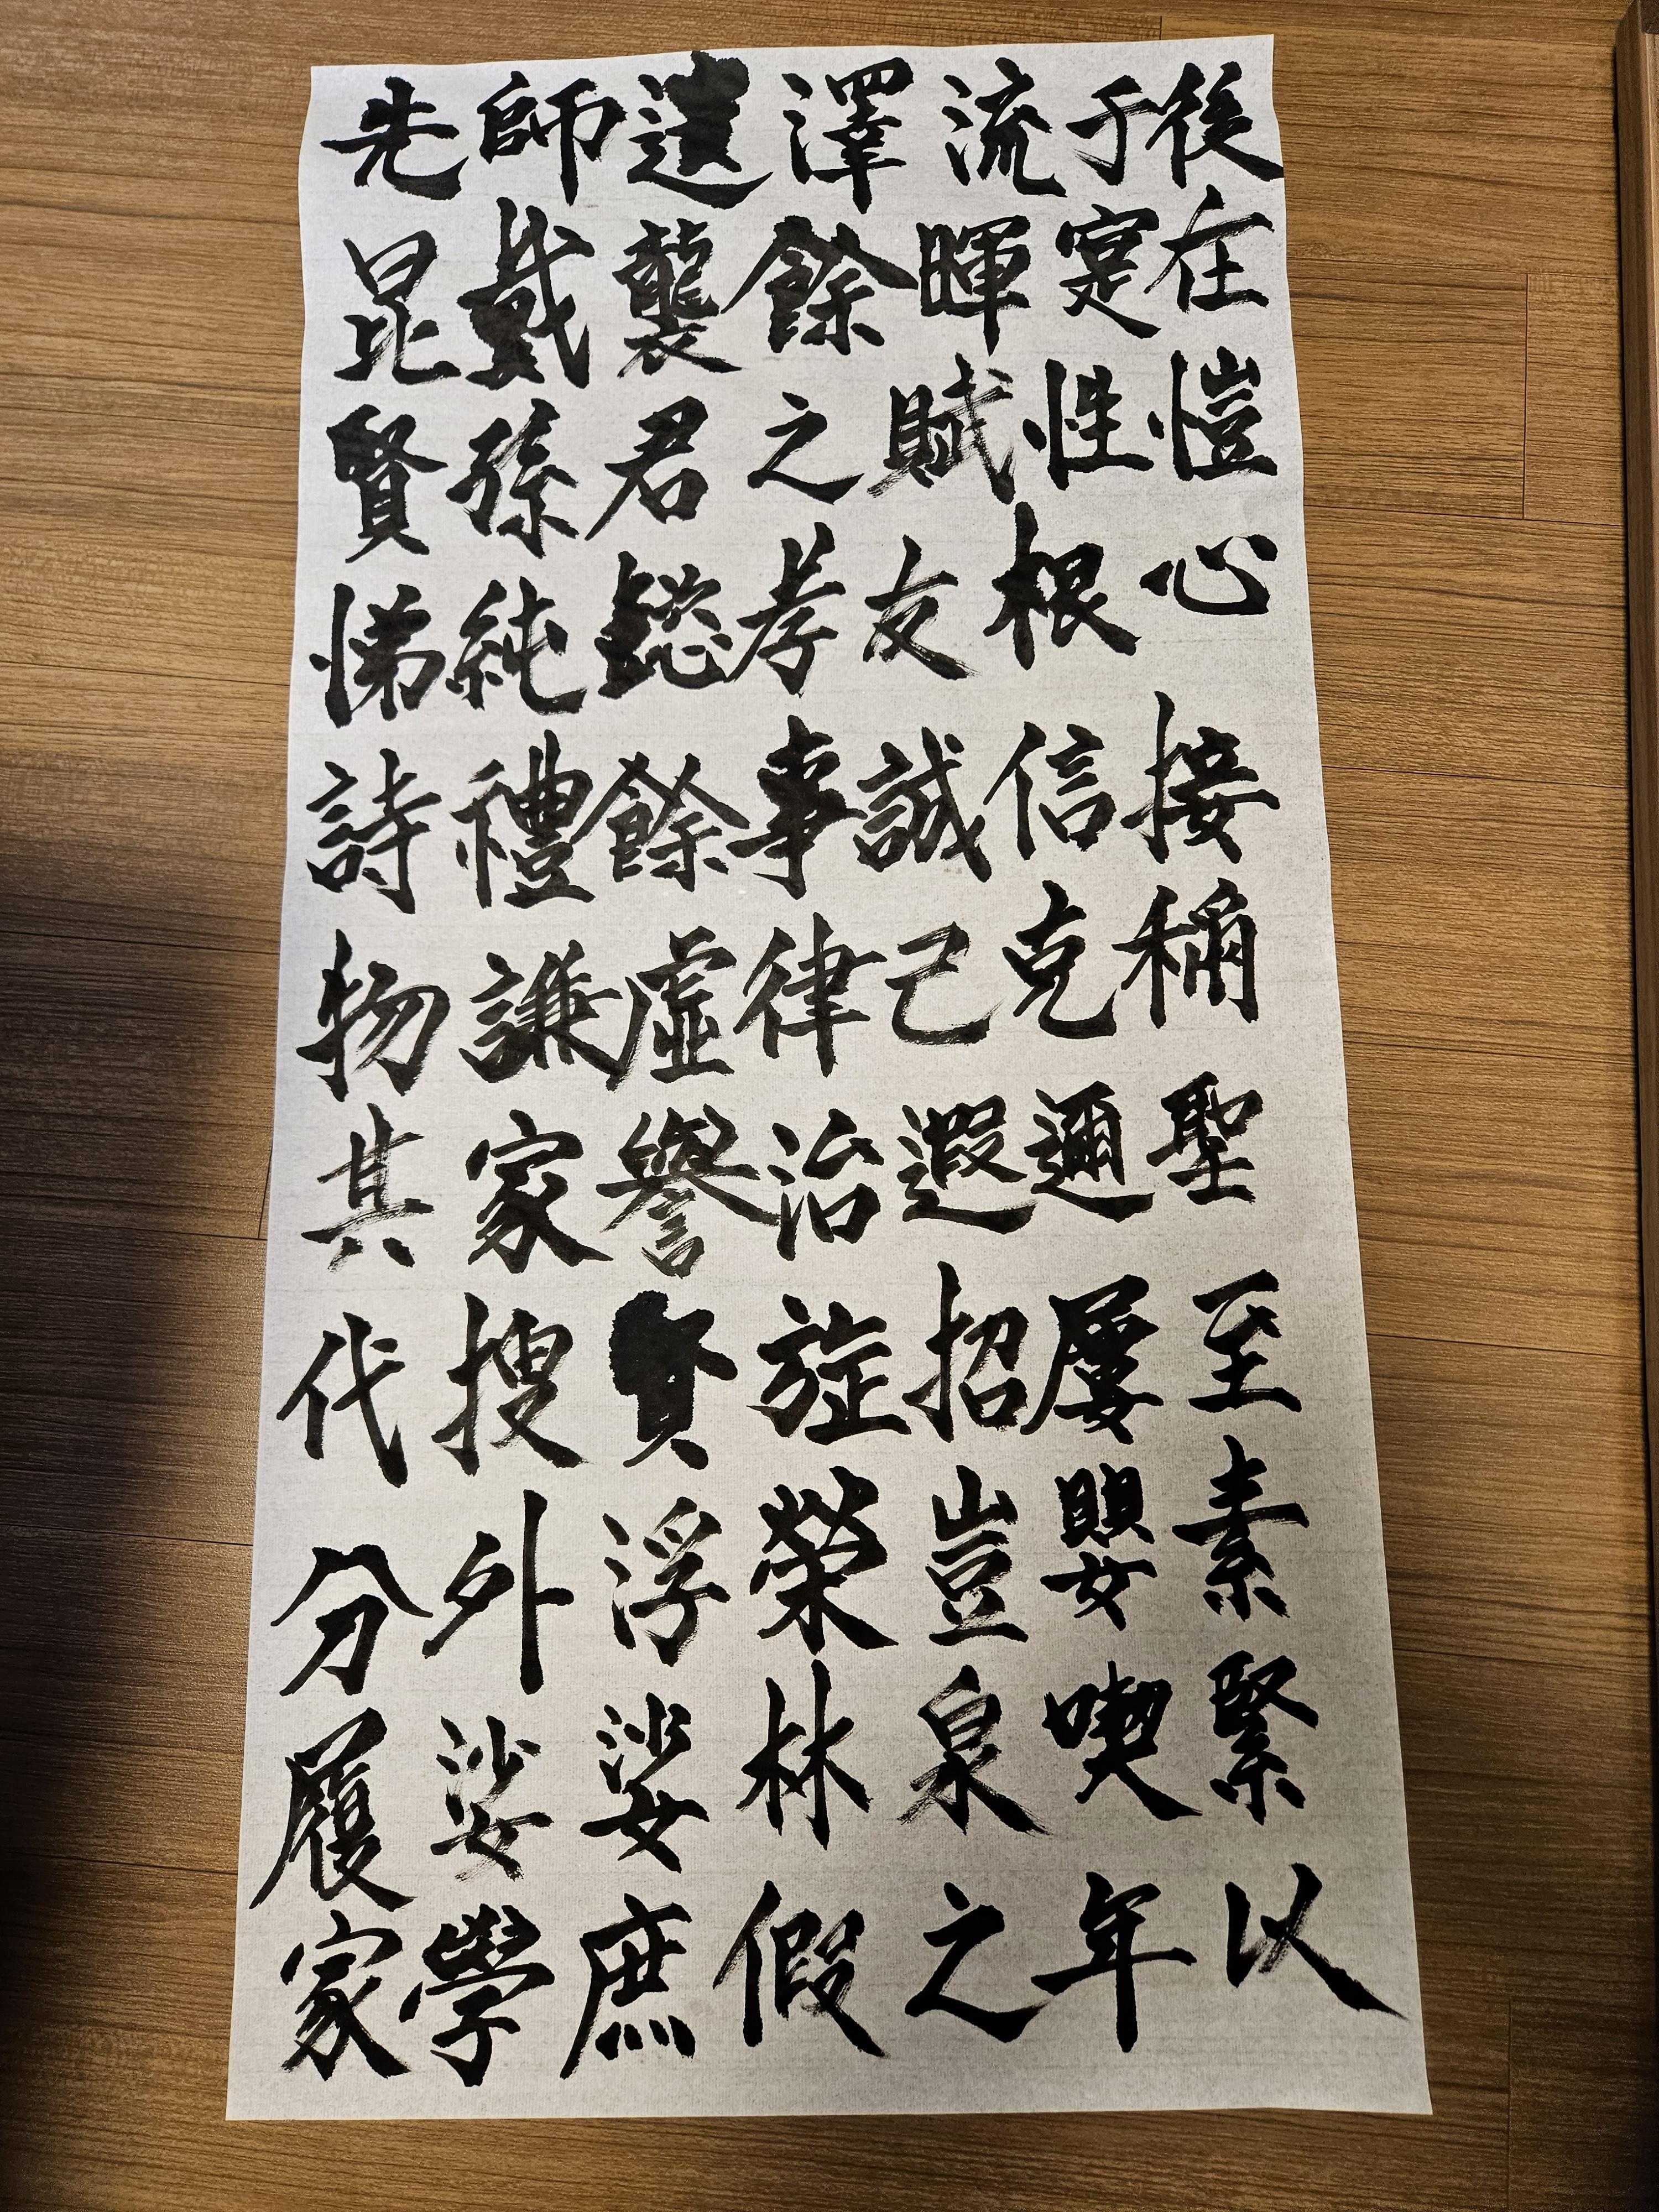 先師遺澤流于後
昆戴襲餘暉寔在
賢孫君之賦性愷
悌純懿孝友根心
詩禮餘事誠信接
物謙虛律己克稱
其家譽治遐邇聖
代搜賢旌招屢至
分外浮榮豈嬰素
履娑娑林泉喫緊
家學庶假之年以